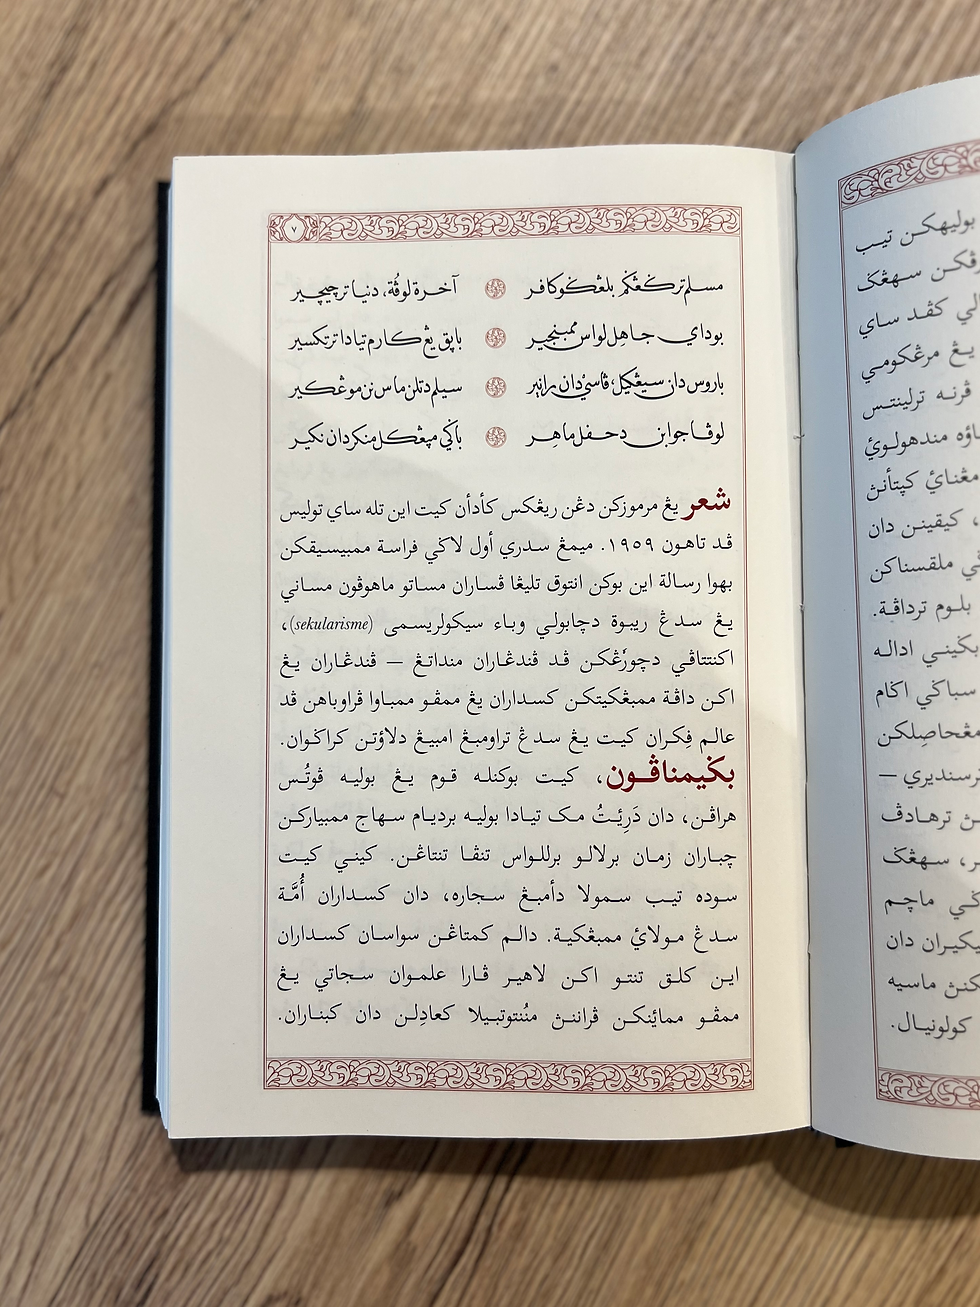 ٧
مسلم ترڬڠݢم بلڠݢو كافر آخرة لوڤة، دنيا ترچيچير
بوداي جاهل لواس ممبنجير باپق يڠ كارم تيادا ترتكسير
باروس دان سيڠكيل، ڤاسيء دان رانير سيلم دتلن ماس نن موڠكير
لوڤا جوابن دحفل ماهير باݢي ميڠكل منكر دان نكير
شعر يڠ مرموزكن دڠن ريڠكس كأدأن كيت اين تله ساي توليس
ڤد تاهون ١٩٥٩. ميمڠ سدري أول لاݢي فراسة ممبيسيقكن
بهوا رسالة اين بوكن انتوق تليڠا ڤساران مساتو ماهوڤون مساني
يڠ سدڠ ريبوة دچابولي وباء سيكولريسمى (sekularisme)،
اكنتتاڤي دچورڠكن ڤد ڤندڠاران منداتڠ — ڤندڠاران يڠ
اكن داڤة ممبڠكيتكن كسداران يڠ ممڤو ممباوا ڤراوباهن ڤد
عالم فِكران كيت يڠ سدڠ تراومبڠ امبيڠ دلاؤتن كراݢوان.
بݢيمناڤون، كيت بوكنله قوم يڠ بوليه ڤوتُس
هراڤن، دان دَرِيْتُ مک تيادا بوليه برديام سهاج ممبياركن
چباران زمان برلالو برللواس تنڤا تنتاڠن. كيني كيت
سوده تيب سمولا دأمبڠ سجاره، دان كسداران أُمَّة
سدڠ مولاءي ممبڠكية. دالم كمتاڠن سواسان كسداران
اين كلق تنتو اكن لاهير ڤارا علموان سجاتي يڠ
ممڤو مماءينكن ڤراننڽ منُنتوتبيلا كعادِلن دان كبناران.
بوليهكن تيب
سهڠݢ
لي كڤد ساي
يڠ مرڠكومي
ڤرنه ترلينتس
مندهولوءي
كڤتأنڽ
، كيقينن دان
ملڤسناكن
بلوم ترداڤة.
اداله
سباݢي اݢام
مڠحاصِلكن
—
ترهادڤ
ر، سهڠݢ
ماچم
دان
ماسيه
كولونيال.